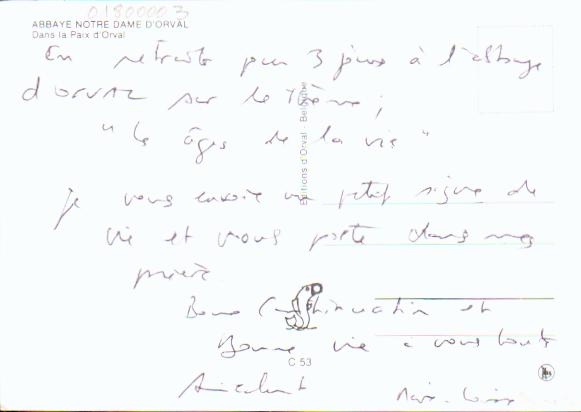 01800003
ABBAYE NOTRE DAME D'ORVAL
Dans la Paix d'Orval
En retraite pour 3 jours à l'abbaye
d'ORVAL sur le thème ;
" les âges de la vie "
je vous envoie un petit signe de
vie et vous porte dans mes
prière
Bonne Continuation et
Bonne vie à vous toutes
Amicalement
Editions d'Orval - Belgique
C 53